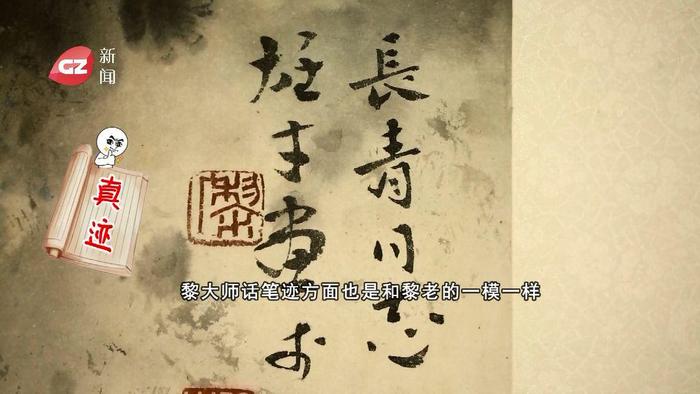 GZ 新闻
真迹
長青同志
雄才畫
黎
黎大师话笔迹方面也是和黎老的一模一样